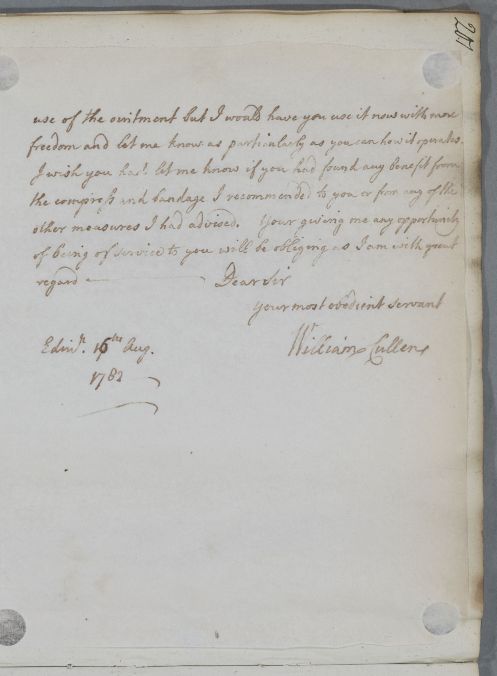 251
use of the ointment but I would have you use it now with more
freedom and let me know as particularly as you can how it operates.
I wish you had let me know if you had found any benefit from
the compress and bandage I recommended to you or from any of the
other measures I had advised. Your giving me any opportunity
of being of service to you will be obliging as I am with great
regard Dear Sir
your most obedient servant
William Cullen
Edinr. 16th Aug.
1782